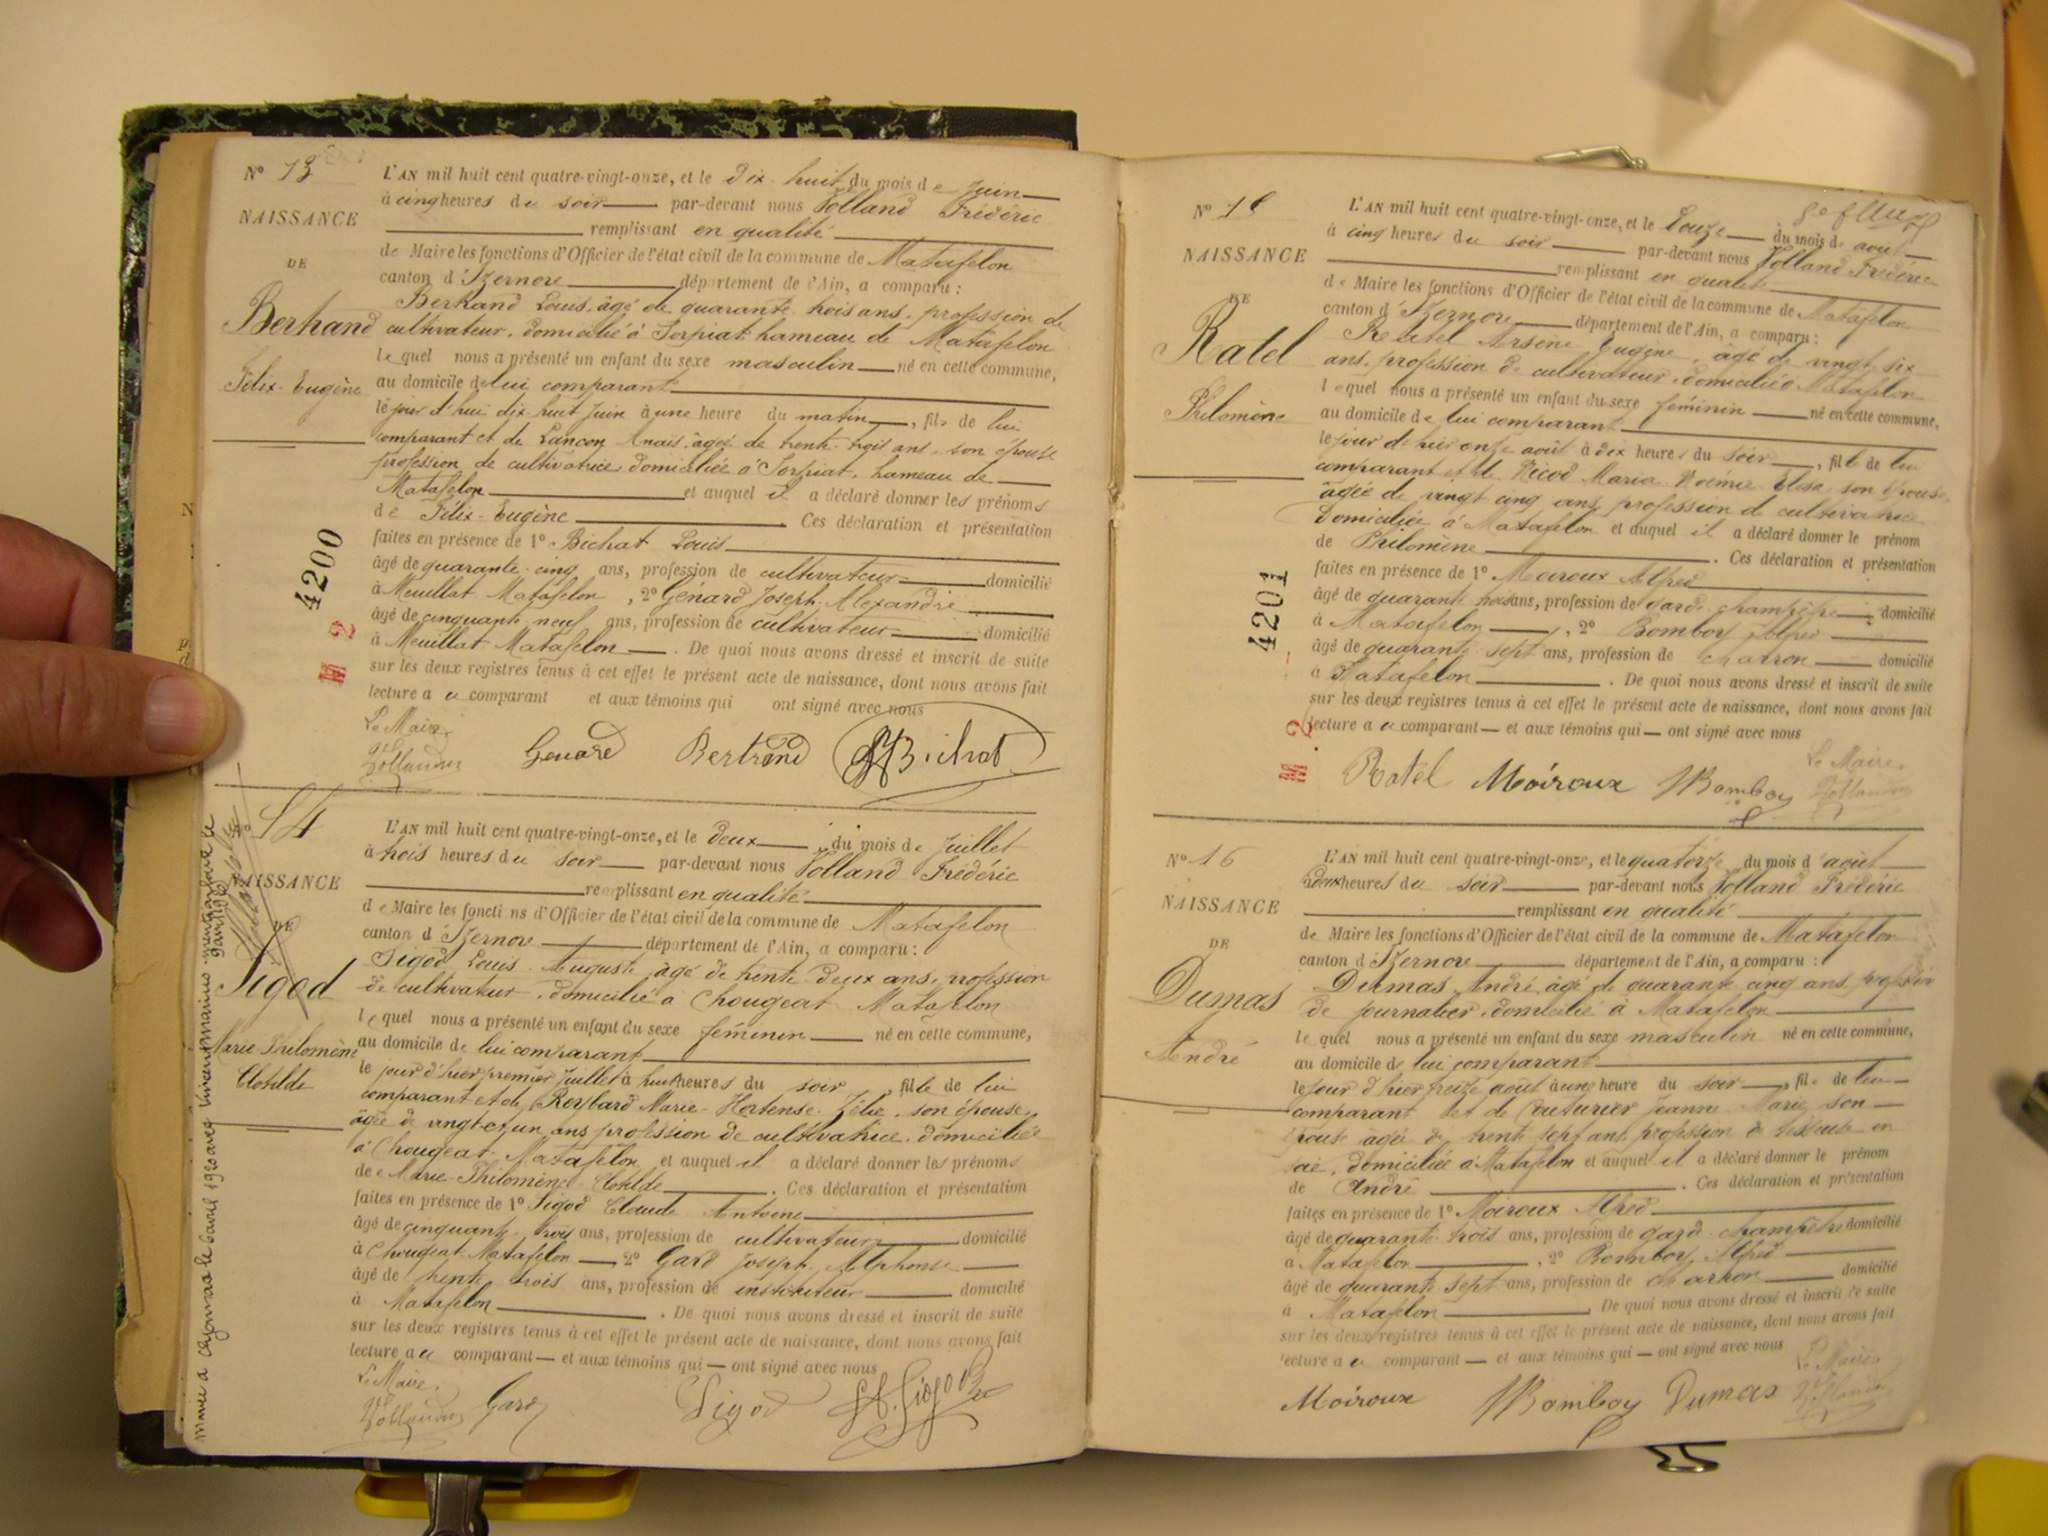 N° 13
NAISSANCE
DE
Bertrand
Félix-Eugène
L'AN mil huit cent quatre-vingt-onze, et le dix-huit du mois de Juin
à cinq heures du soir par-devant nous Volland Frédéric
remplissant en qualité
de Maire les fonctions d'Officier de l'état civil de la commune de Matafelon
canton d'Izernore département de l'Ain, a comparu :
Bertrand Louis, âgé de quarante trois ans, profession de
cultivateur, domicilié à Sorpiat hameau de Matafelon
lequel nous a présenté un enfant du sexe masculin né en cette commune,
au domicile de lui comparant
le jour d'hui dix huit Juin à une heure du matin, fils de lui
comparant et de Lançon Anaïs, âgée de trente-trois ans, son épouse
profession de cultivatrice domiciliée à Sorpiat, hameau de
Matafelon et auquel il a déclaré donner les prénoms
de Félix-Eugène Ces déclaration et présentation
faites en présence de 1° Bichat Louis
âgé de quarante-cinq ans, profession de cultivateur domicilié
à Meuillat Matafelon, 2° Génard Joseph-Alexandre
âgé de cinquante neuf ans, profession de cultivateur domicilié
à Meuillat-Matafelon. De quoi nous avons dressé et inscrit de suite
sur les deux registres tenus à cet effet le présent acte de naissance, dont nous avons fait
lecture au comparant et aux témoins qui ont signé avec nous
Le Maire,
Volland Genard Bertrand Bichat
M 2 4200
N° 14
NAISSANCE
DE
Sigod
Marie Philomène
Clotilde
L'AN mil huit cent quatre-vingt-onze, et le deux du mois de Juillet
à trois heures du soir par-devant nous Volland Frédéric
remplissant en qualité
de Maire les fonctions d'Officier de l'état civil de la commune de Matafelon
canton d'Izernore département de l'Ain, a comparu :
Sigod Louis-Auguste, âgé de trente-deux ans, profession
de cultivateur, domicilié à Chougeat Matafelon
lequel nous a présenté un enfant du sexe féminin né en cette commune,
au domicile de lui comparant
le jour d'hier premier Juillet à huit heures du soir, fille de lui
comparant et de Reybard Marie-Hortense-Zélie, son épouse,
âgée de vingt-et-un ans profession de cultivatrice, domiciliée
à Chougeat-Matafelon et auquel il a déclaré donner les prénoms
de Marie-Philomène-Clotilde. Ces déclaration et présentation
faites en présence de 1° Sigod Claude Antoine
âgé de cinquante-trois ans, profession de cultivateur domicilié
à Chougeat-Matafelon, 2° Gard Joseph-Alphonse
âgé de trente trois ans, profession de instituteur domicilié
à Matafelon. De quoi nous avons dressé et inscrit de suite
sur les deux registres tenus à cet effet le présent acte de naissance, dont nous avons fait
lecture au comparant et aux témoins qui ont signé avec nous
Le Maire,
Volland Gard Sigod Sigod
N° 15
NAISSANCE
DE
Ratel
Philomène
L'AN mil huit cent quatre-vingt-onze, et le Douze du mois de août
à cinq heures du soir par-devant nous Volland Frédéric
remplissant en qualité
de Maire les fonctions d'Officier de l'état civil de la commune de Matafelon
canton d'Izernore département de l'Ain, a comparu :
Ratel Arsène Eugène, âgé de vingt six
ans, profession de cultivateur, domicilié à Matafelon
lequel nous a présenté un enfant du sexe féminin né en cette commune,
au domicile de lui comparant
le jour d'hier onze août à dix heures du soir, fille de lui
comparant et de Nicod Maria Noémie Elisa son épouse
âgée de vingt cinq ans, profession de cultivatrice
Domiciliée à Matafelon et auquel il a déclaré donner le prénom
de Philomène. Ces déclaration et présentation
faites en présence de 1° Moiroux Alfred
âgé de quarante trois ans, profession de garde-champêtre domicilié
à Matafelon, 2° Bomboy Alfred
âgé de quarante-sept ans, profession de charron domicilié
à Matafelon. De quoi nous avons dressé et inscrit de suite
sur les deux registres tenus à cet effet le présent acte de naissance, dont nous avons fait
lecture au comparant et aux témoins qui ont signé avec nous
Le Maire,
Ratel Moiroux Bomboy Volland
M 2 4201
N° 16
NAISSANCE
DE
Dumas
André
L'AN mil huit cent quatre-vingt-onze, et le quatorze du mois d'août
à deux heures du soir par-devant nous Volland Frédéric
remplissant en qualité
de Maire les fonctions d'Officier de l'état civil de la commune de Matafelon
canton d'Izernore département de l'Ain, a comparu :
Dumas André âgé de quarante cinq ans, profession
de journalier, domicilié à Matafelon
lequel nous a présenté un enfant du sexe masculin né en cette commune,
au domicile de lui comparant
le jour d'hier treize août à cinq heure du soir, fils de lui
comparant et de Couturier Jeanne Marie, son
épouse âgée de trente sept ans, profession de tisseuse en
soie, domiciliée à Matafelon et auquel il a déclaré donner le prénom
de André. Ces déclaration et présentation
faites en présence de 1° Moiroux Alfred
âgé de quarante-trois ans, profession de garde-champêtre domicilié
à Matafelon, 2° Bomboy Alfred
âgé de quarante sept ans, profession de charron domicilié
à Matafelon. De quoi nous avons dressé et inscrit de suite
sur les deux registres tenus à cet effet le présent acte de naissance, dont nous avons fait
lecture au comparant et aux témoins qui ont signé avec nous
Le Maire
Moiroux Bomboy Dumas Volland